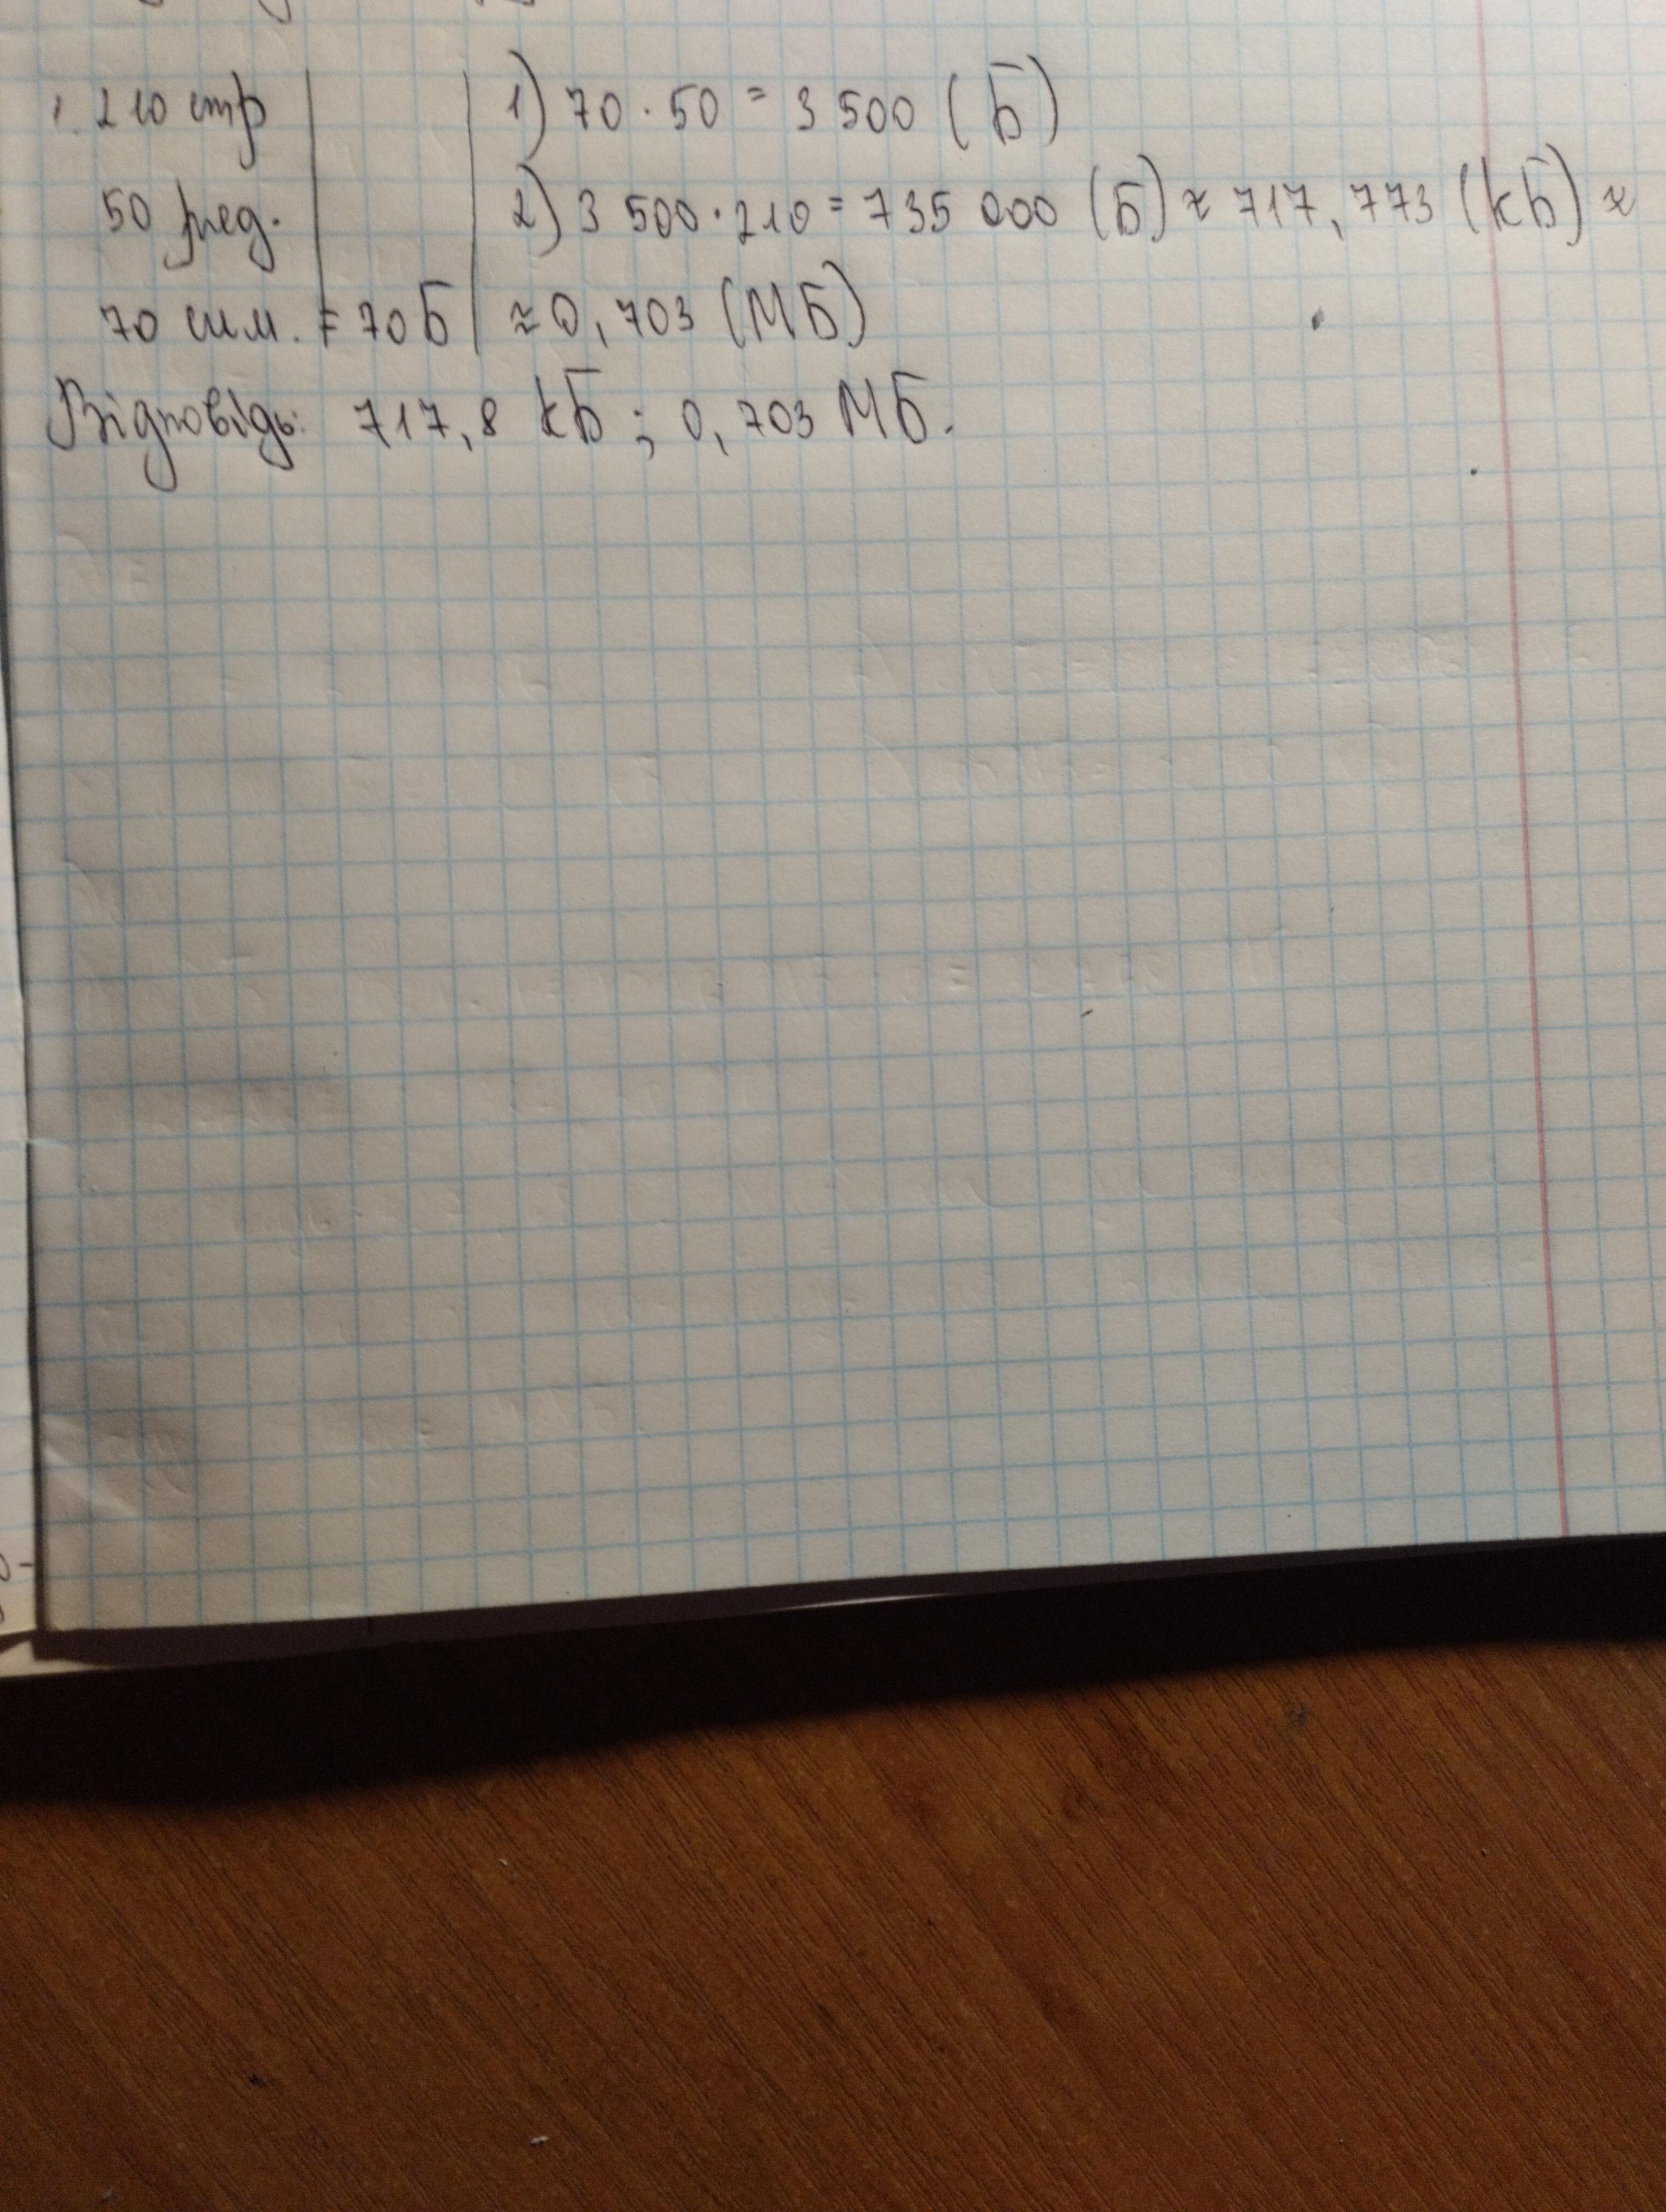 1. 210 стр
50 ряд.
70 сим. = 70Б
1) 70 · 50 = 3 500 (Б)
2) 3 500 · 210 = 735 000 (Б) ≈ 717,773 (кБ) ≈
≈ 0,703 (МБ)
Відповідь: 717,8 кБ ; 0,703 МБ.